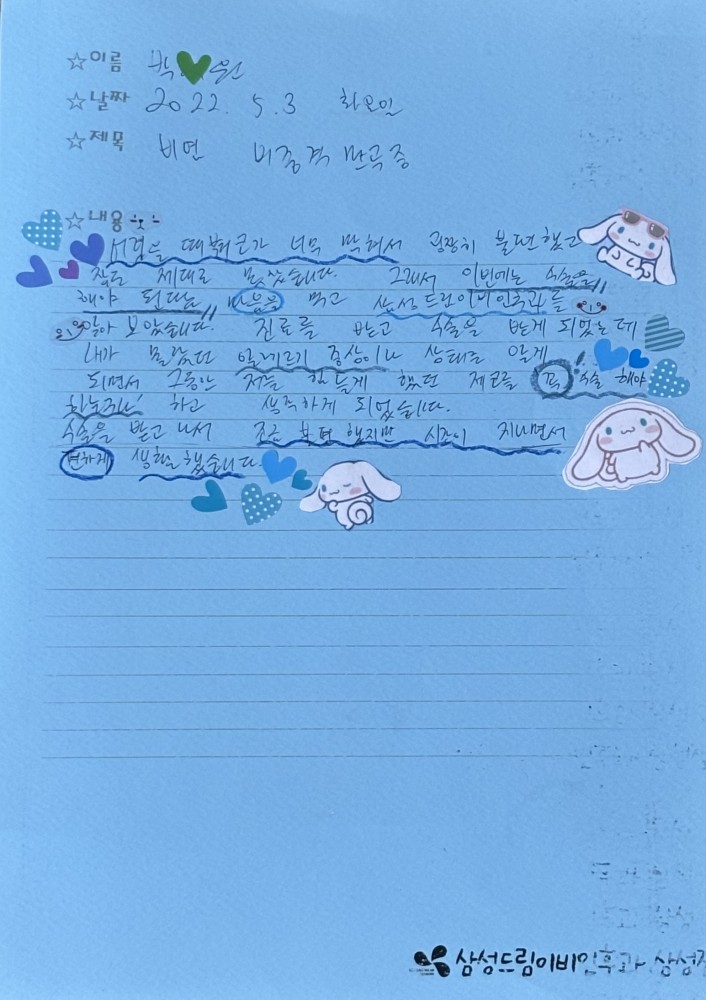 ☆이름 박 원
☆날짜 2022. 5. 3 화요일
☆제목 비염 비중격 만곡증
☆내용
시험을 때 코가 너무 막혀서 굉장히 불편했고
잠도 제대로 못잤습니다. 그래서 이번에는 수술을
해야 된다는 마음을 먹고 삼성드림이비인후과를
찾아 보았습니다. 진료를 받고 수술을 받게 되었는데
내가 몰랐던 알레르기 증상이나 상태를 알게
되면서 그동안 저를 힘들게 했던 제코를 꼭! 수술 해야
하는구나' 하고 생각하게 되었습니다.
수술을 받고 나서 조금 부었지만 시간이 지나면서
편하게 생활했습니다
삼성드림이비인후과 삼성